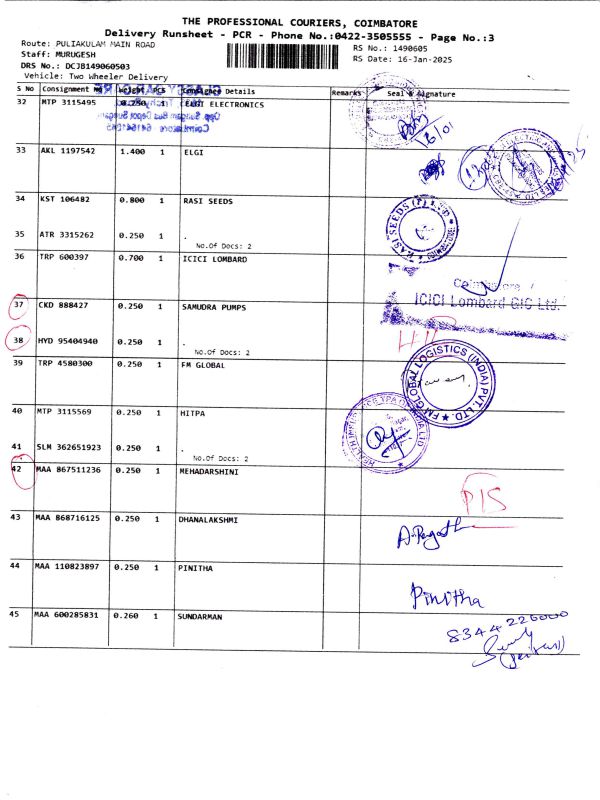 THE PROFESSIONAL COURIERS, COIMBATORE
Delivery Runsheet - PCR - Phone No.:0422-3505555 - Page No.:3
Route: PULIAKULAM MAIN ROAD
RS No.: 1490605
Staff: MURUGESH
RS Date: 16-Jan-2025
DRS No.: DCJB149060503
Vehicle: Two Wheeler Delivery
S No Consignment No Weight PCS Consignee Details Remarks Seal & Signature
32 MTP 3115495 0.250 1 ELGI ELECTRONICS
16/01
33 AKL 1197542 1.400 1 ELGI
34 KST 106482 0.800 1 RASI SEEDS
RASI SEEDS (P) LTD
35 ATR 3315262 0.250 1 .
No.Of Docs: 2
36 TRP 600397 0.700 1 ICICI LOMBARD
Coimbatore
ICICI Lombard GIC Ltd.
37 CKD 888427 0.250 1 SAMUDRA PUMPS
38 HYD 95404940 0.250 1 .
No.Of Docs: 2
39 TRP 4580300 0.250 1 FM GLOBAL
FM GLOBAL LOGISTICS (INDIA) PVT. LTD.
40 MTP 3115569 0.250 1 HITPA
41 SLM 362651923 0.250 1 .
No.Of Docs: 2
42 MAA 867511236 0.250 1 MEHADARSHINI
PIS
43 MAA 868716125 0.250 1 DHANALAKSHMI
44 MAA 110823897 0.250 1 PINITHA
Pinitha
45 MAA 600285831 0.260 1 SUNDARMAN
8344226000